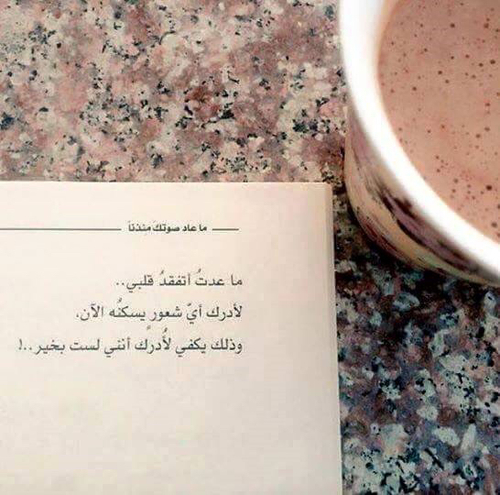 ما عاد صوتكَ منذناً
ما عدتُ أتفقدُ قلبي..
لأدرك أيّ شعورٍ يسكنُه الآن،
وذلك يكفي لأُدرك أنني لست بخير..!